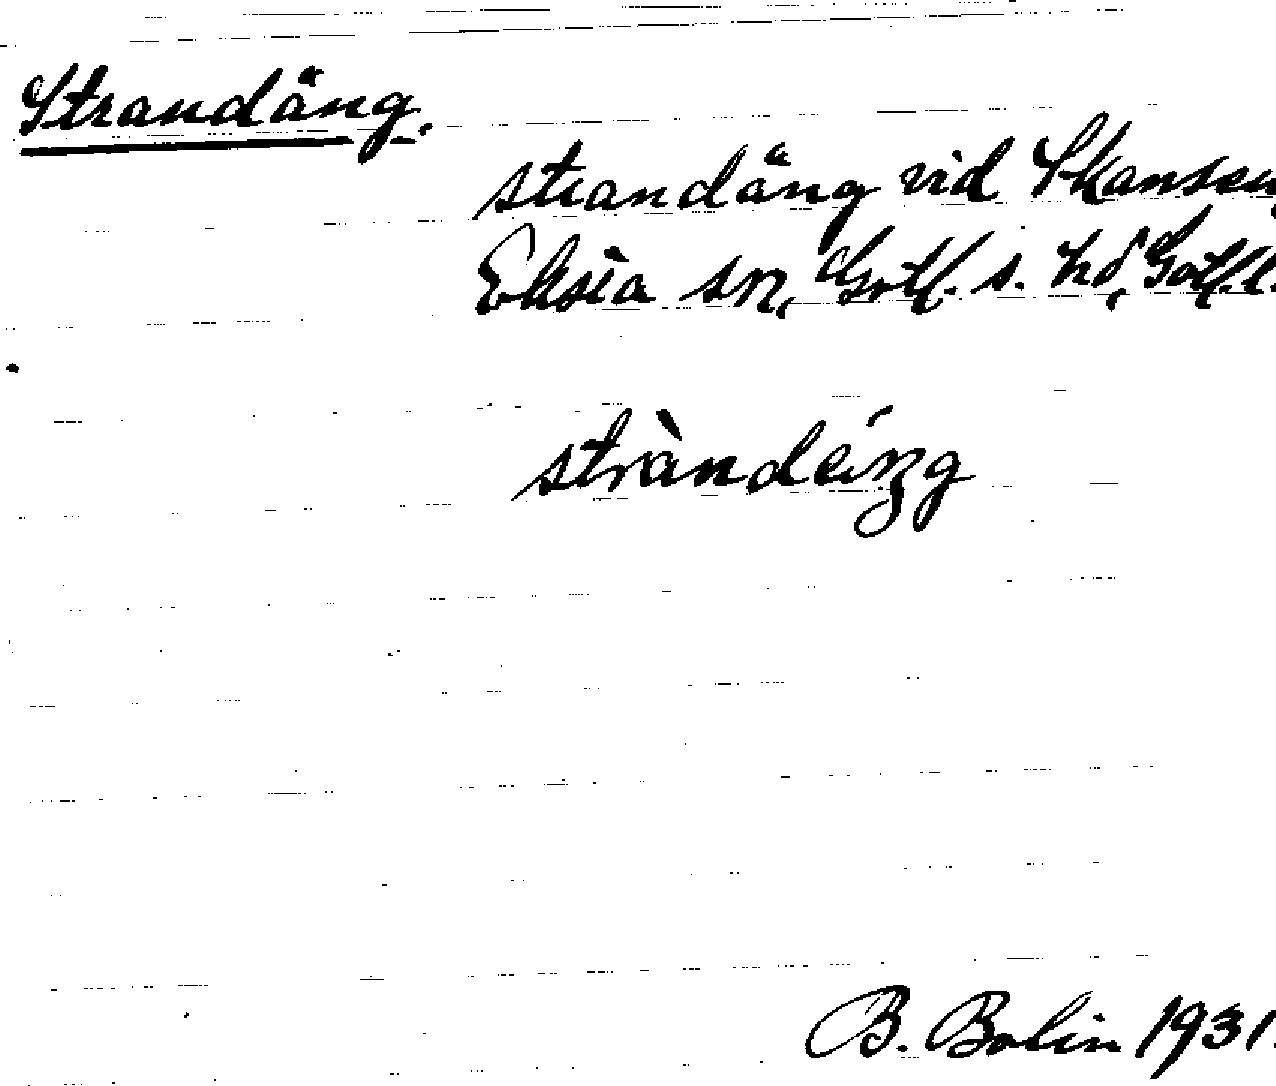 Strandäng.
strandäng vid Skansen,
Eksta sn, Gotl. s. hd, Gotl. l.
stràndéiŋg
B. Bolin 1931.